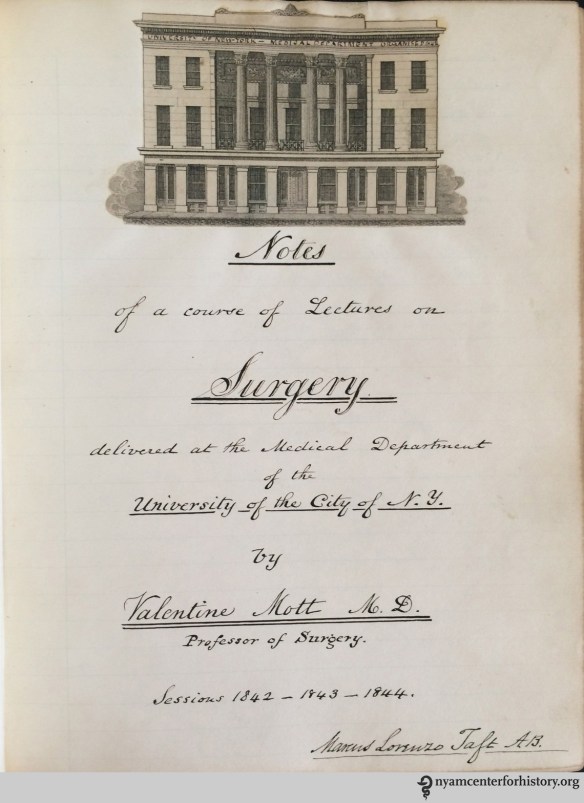 UNIVERSITY OF NEW-YORK — MEDICAL DEPARTMENT
Notes
of a course of Lectures on
Surgery.
delivered at the Medical Department
of the
University of the City of N.Y.
by
Valentine Mott M.D.
Professor of Surgery.
Sessions 1842 – 1843 – 1844.
Marcus Lorenzo Taft AB.
nyamcenterforhistory.org